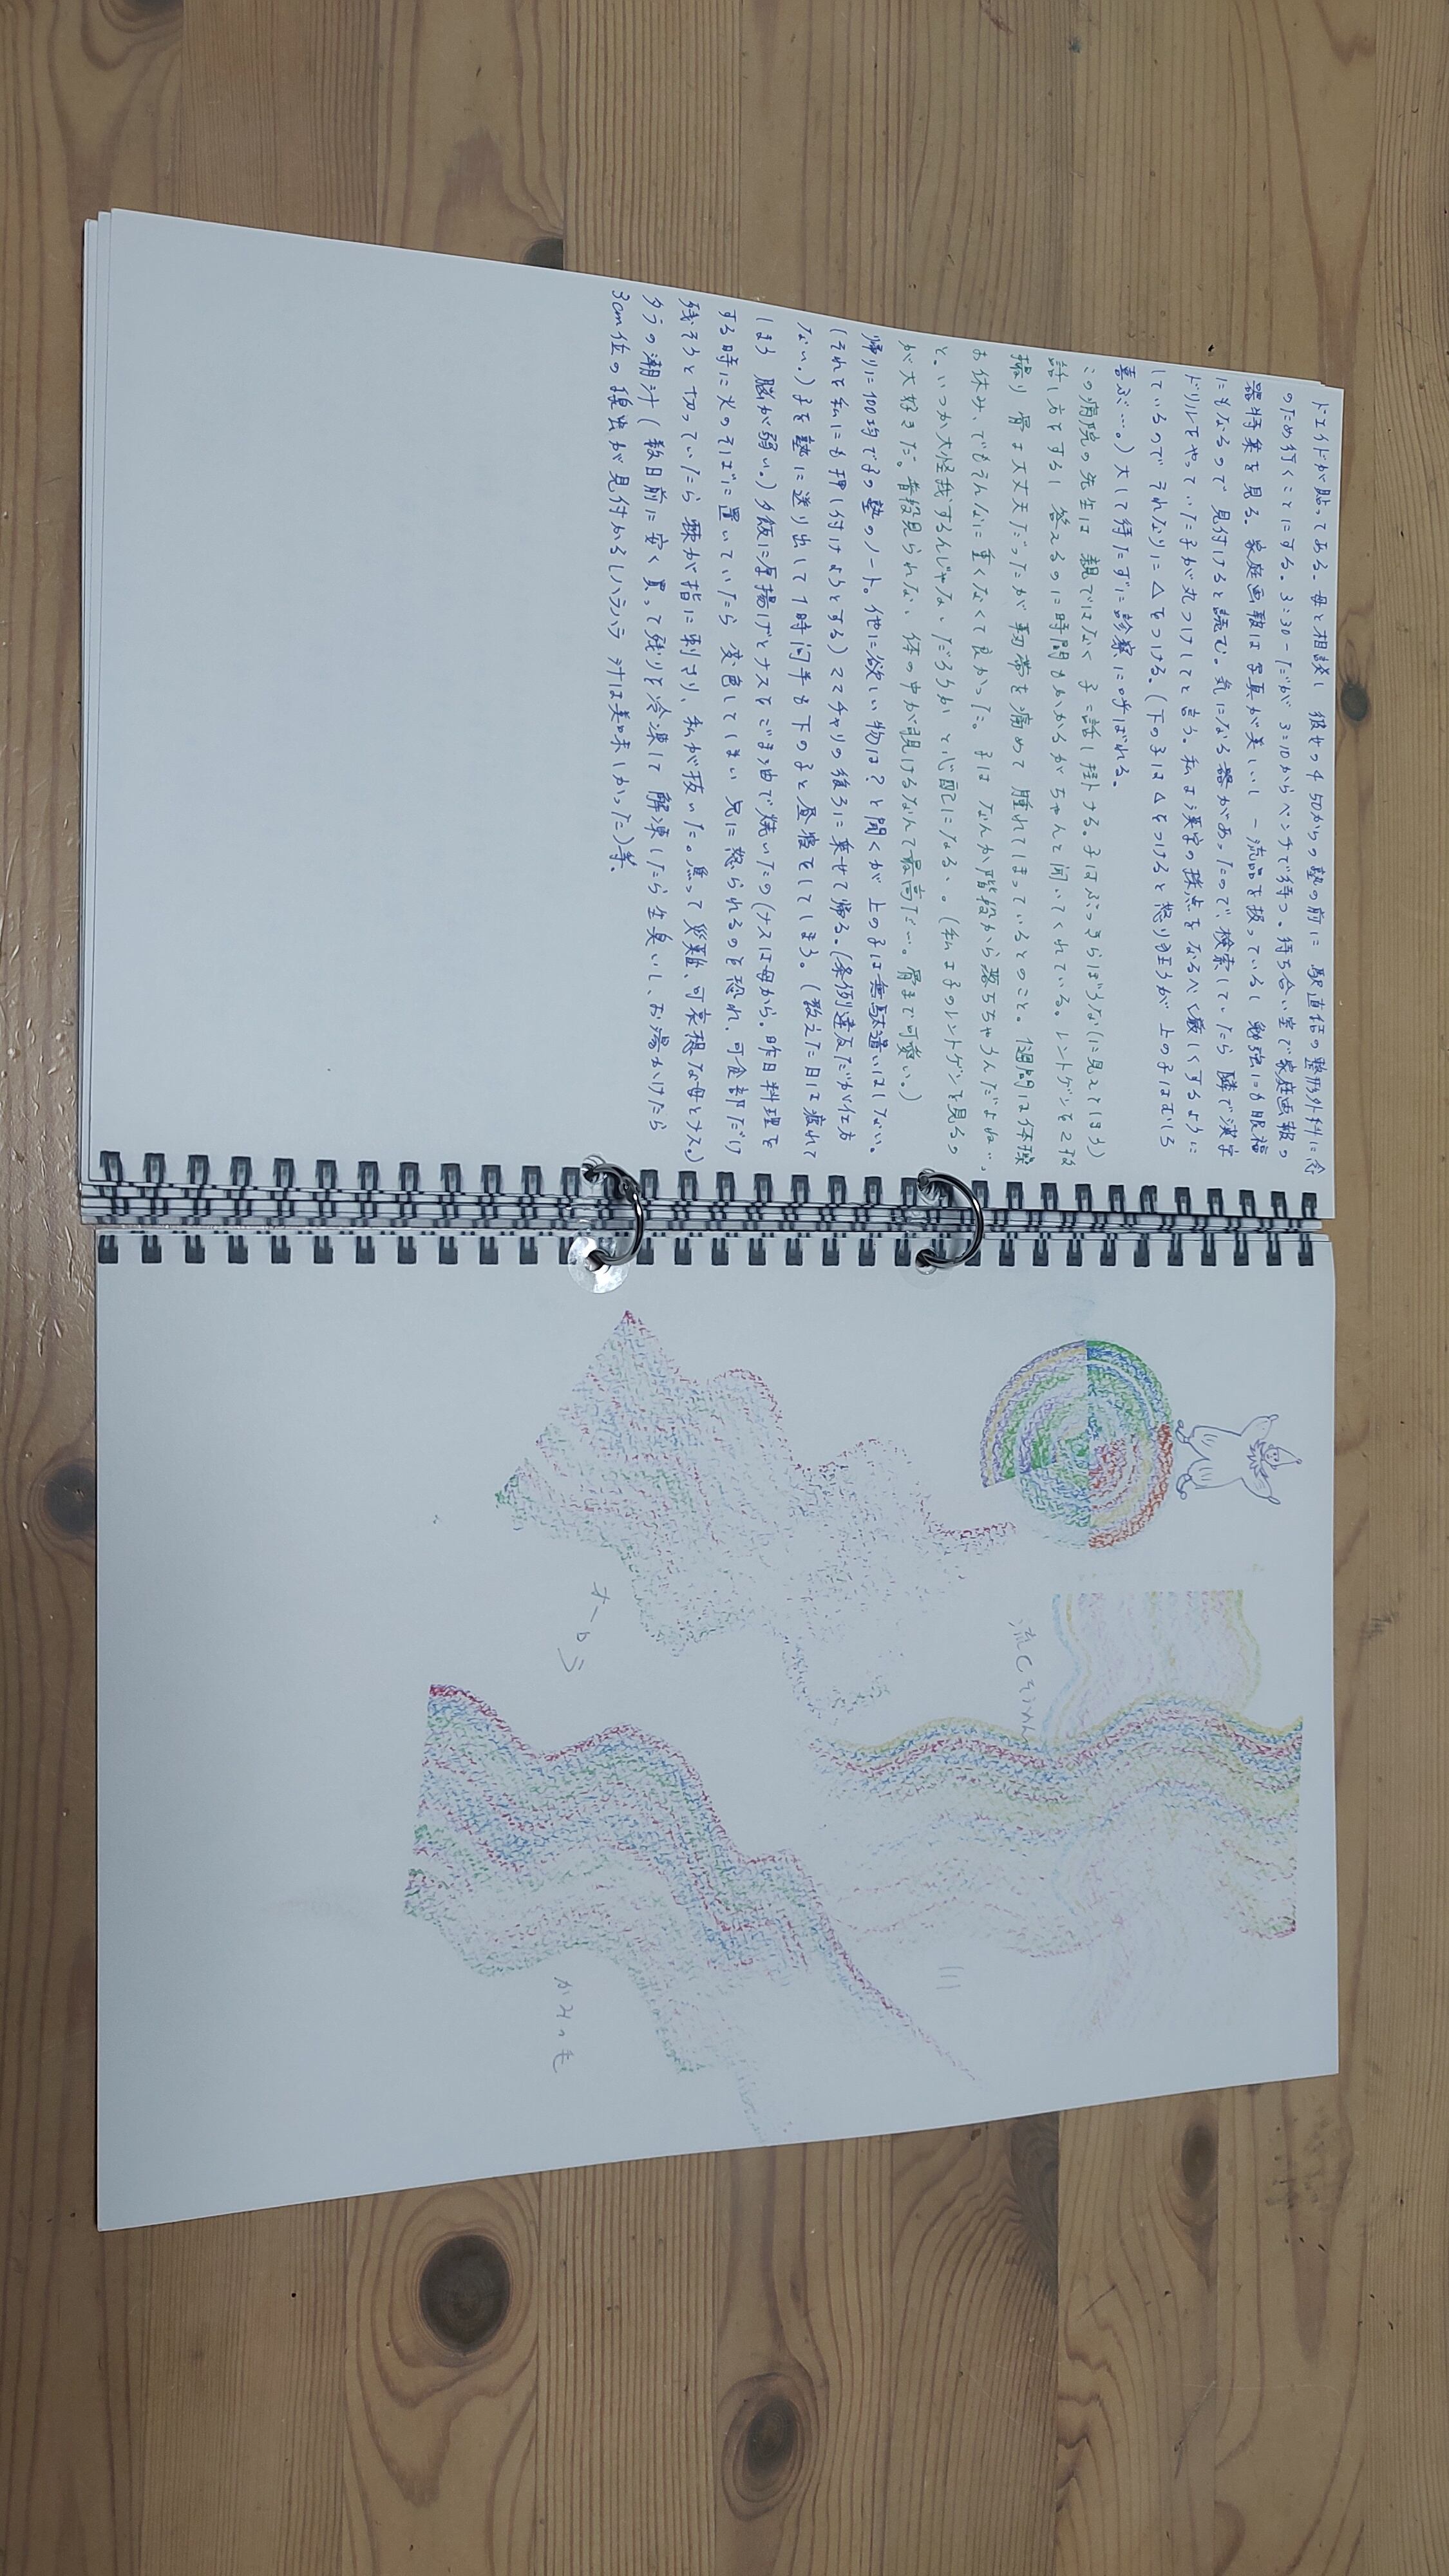 ドエイドが貼ってある。母と相談し 彼女の4:50からの塾の前に 駅直結の整形外科に念
のため行くことにする。3:30〜だが 3:10からベンチで待つ。待ち合い室で家庭画報の
器特集を見る。家庭画報は写真が美しいし 一流品を扱っているし 勉強にも眼福
にもなるので 見付けると読む。気になる器があったので、検索していたら 隣で漢字
ドリルをやっていた子が丸つけしてと言う。私は漢字の採点をなるべく厳しくするように
しているので それなりに△をつける。(下の子は△をつけると怒り狂うが 上の子はむしろ
喜ぶ…。) 大して待たずに診察に呼ばれる。
この病院の先生は 親ではなく 子に話し掛ける。子はぶっきらぼうな(に見えてしまう)
話し方をするし 答えるのに時間もかかるが ちゃんと聞いてくれている。レントゲンを2枚
撮り 骨は大丈夫だったが 靭帯を痛めて 腫れてしまっているとのこと。1週間は体操
お休み、でもそんなに重くなくて良かった。子は なんか階段から落ちちゃうんだよね…
と。いつか大怪我するんじゃないだろうか と心配になる、。(私は子のレントゲンを見るの
が大好きだ。普段見られない 体の中が覗けるなんて最高だ…。骨まで可愛い。)
帰りに100均で子の塾のノート。他に欲しい物は?と聞くが 上の子は無駄遣いはしない。
(それを私にも押し付けようとする) ママチャリの後ろに乗せて帰る。(条例違反だが仕方
ない。) 子を塾に送り出して 1時間半も下の子と昼寝をしてしまう。(教えた日は疲れて
しまう 脳が弱い。) 夕飯に厚揚げとナスをごま油で焼いたの(ナスは母から。昨日料理を
する時に火のそばに置いていたら 変色してしまい 兄に怒られるのを恐れ、可食部だけ
残そうと切っていたら 棘が指に刺さり、私が抜いた。焦って災難、可哀想な母とナス。)
タラの潮汁(数日前に安く買って残りを冷凍して 解凍したら生臭いし、お湯かけたら
3cm位の線虫が見付かるしハラハラ 汁は美味しかった)等、
流しそうめん
オーロラ
川
かみのも